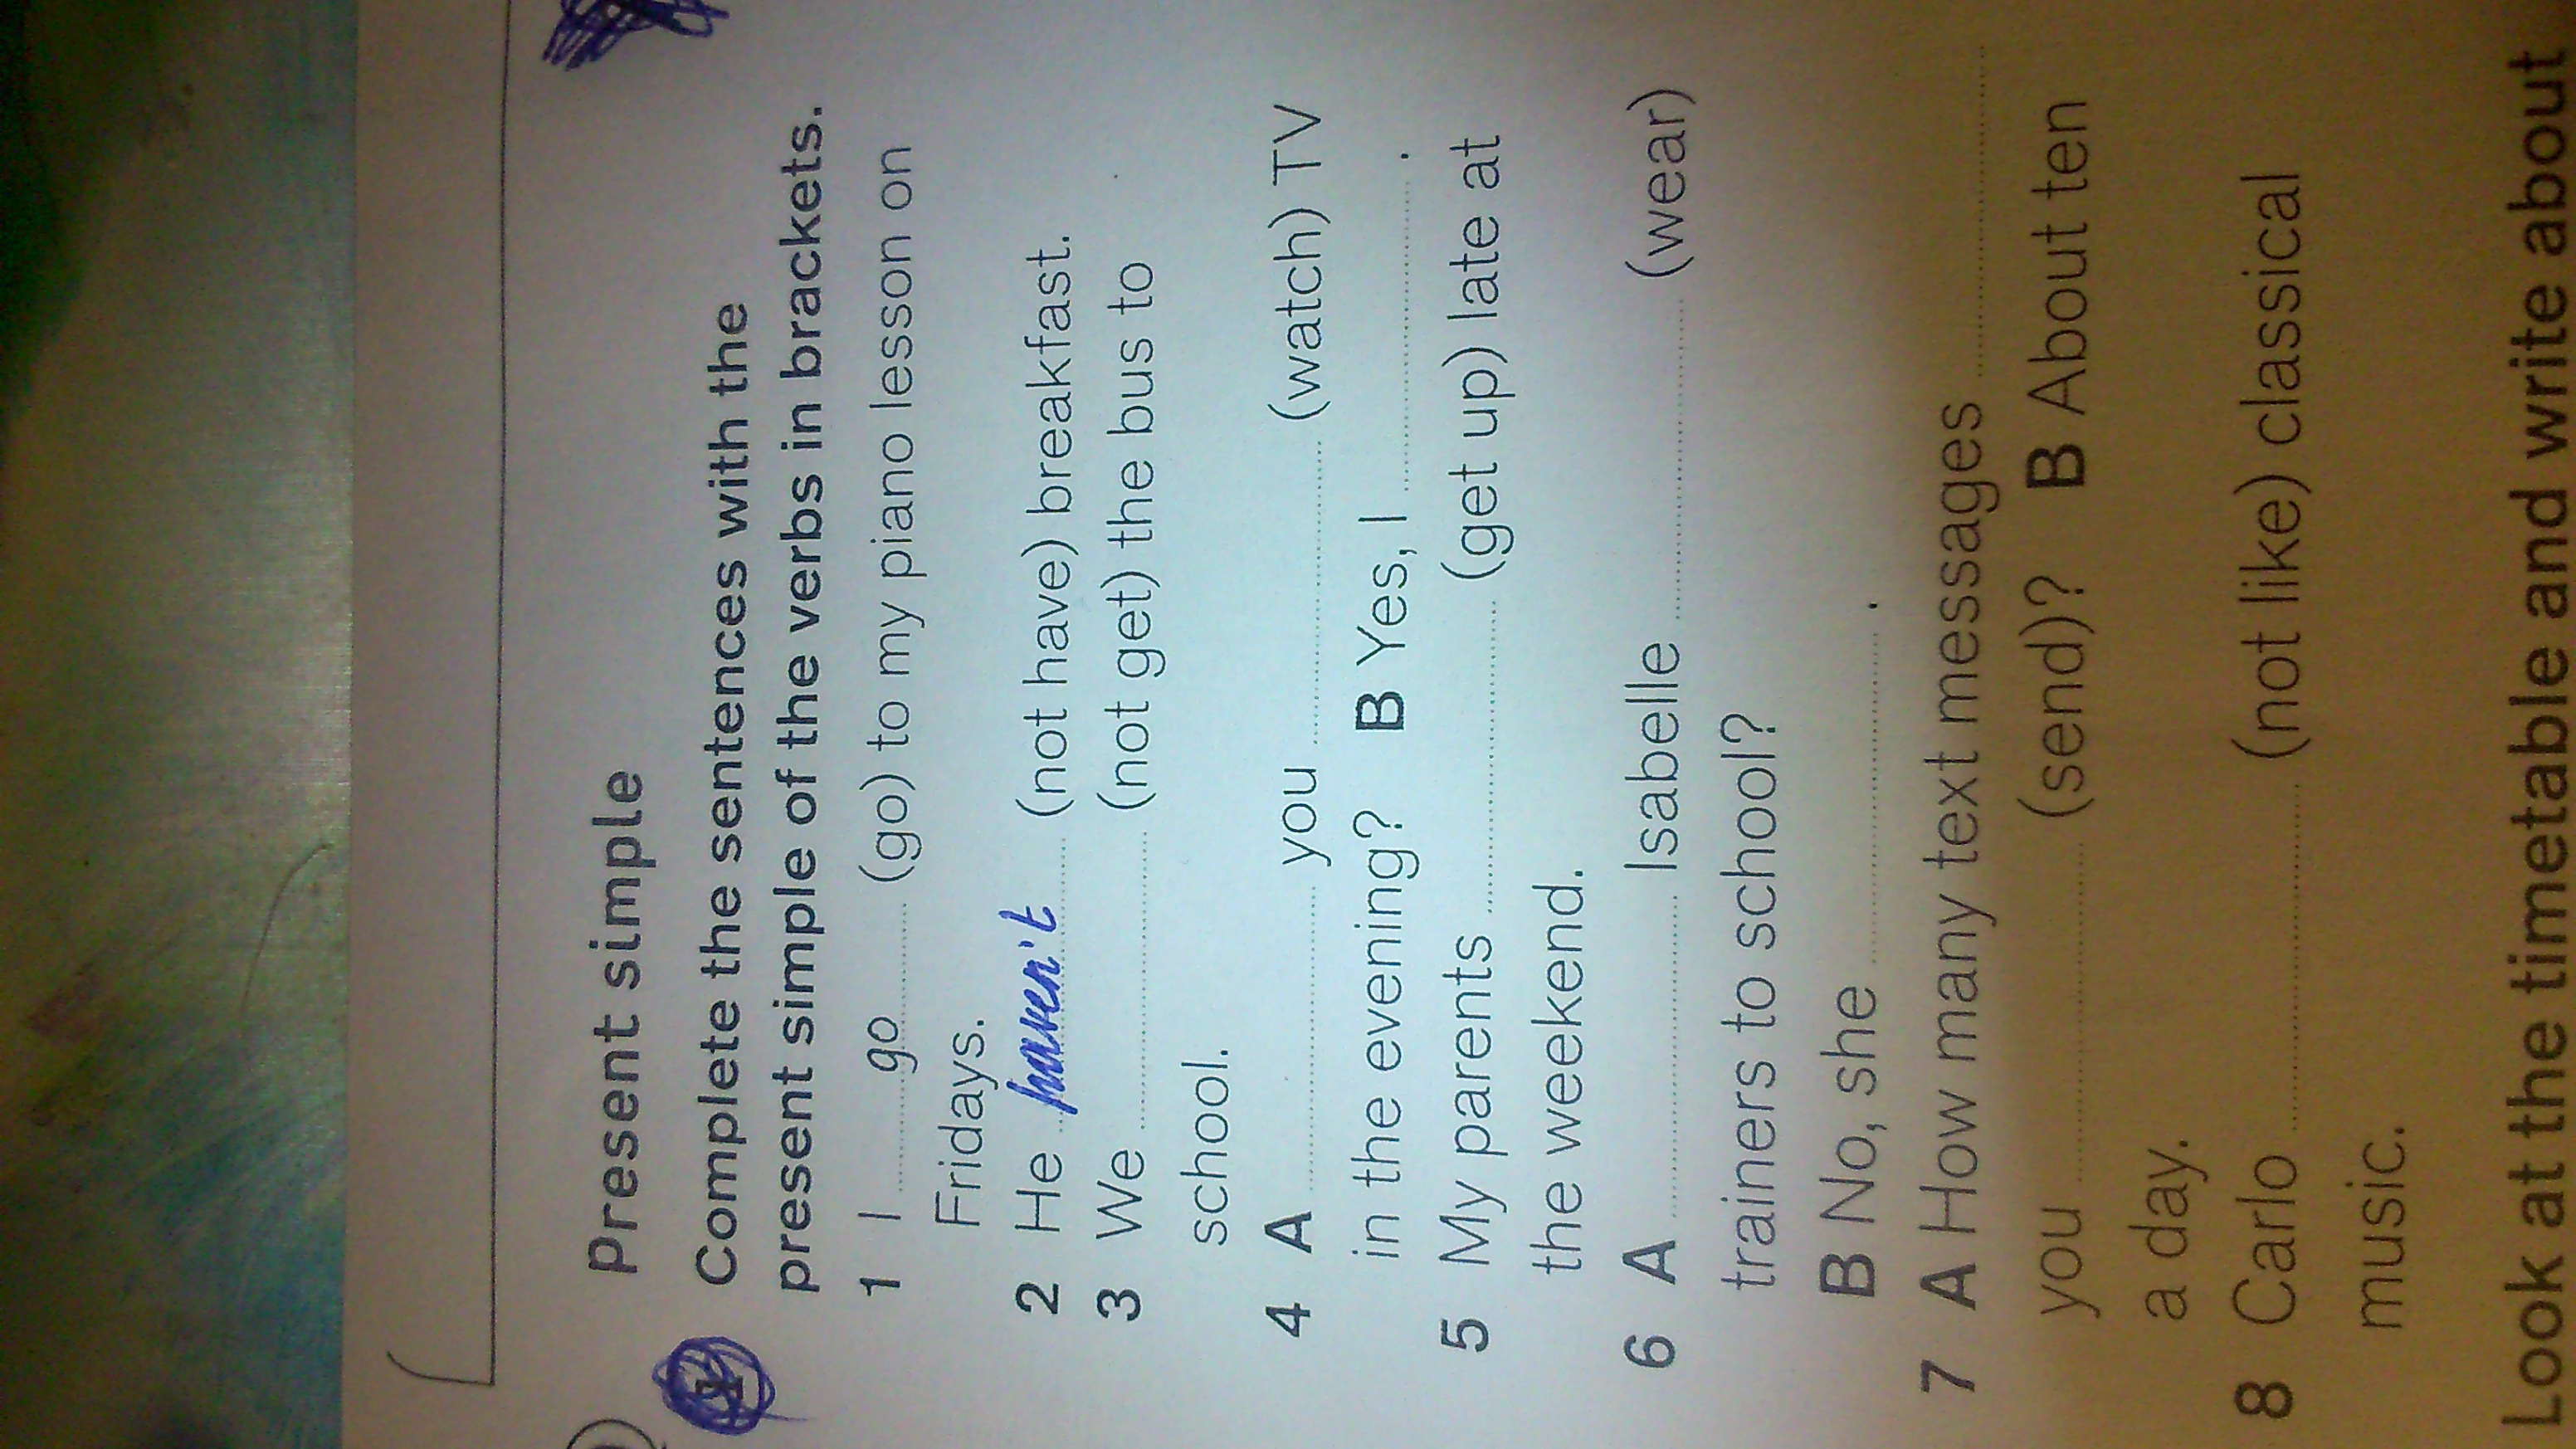 Present simple
Complete the sentences with the
present simple of the verbs in brackets.
1 I ...go... (go) to my piano lesson on
Fridays.
2 He haven't (not have) breakfast.
3 We ............ (not get) the bus to
school.
4 A ............ you ............ (watch) TV
in the evening? B Yes, I ............ .
5 My parents ............ (get up) late at
the weekend.
6 A ............ Isabelle ............ (wear)
trainers to school?
B No, she ............ .
7 A How many text messages ............
you ............ (send)? B About ten
a day.
8 Carlo ............ (not like) classical
music.
Look at the timetable and write about